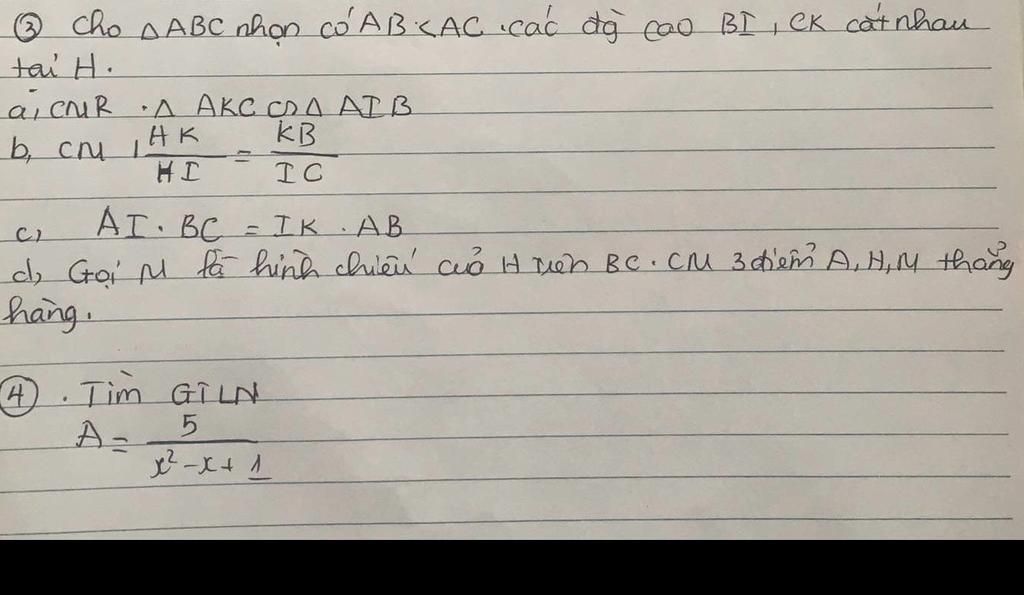 ③ Cho △ABC nhọn có AB < AC . các đg̀ cao BI, CK cắt nhau
tại H.
a, CMR . △ AKC ∽ △ AIB
b, CM , HK/HI = KB/IC
c, AI . BC = IK . AB
d, Gọi M là hình chiếu của H trên BC . CM 3 điểm A, H, M thẳng
hàng.
④ . Tìm GTLN
A = 5/(x² - x + 1)